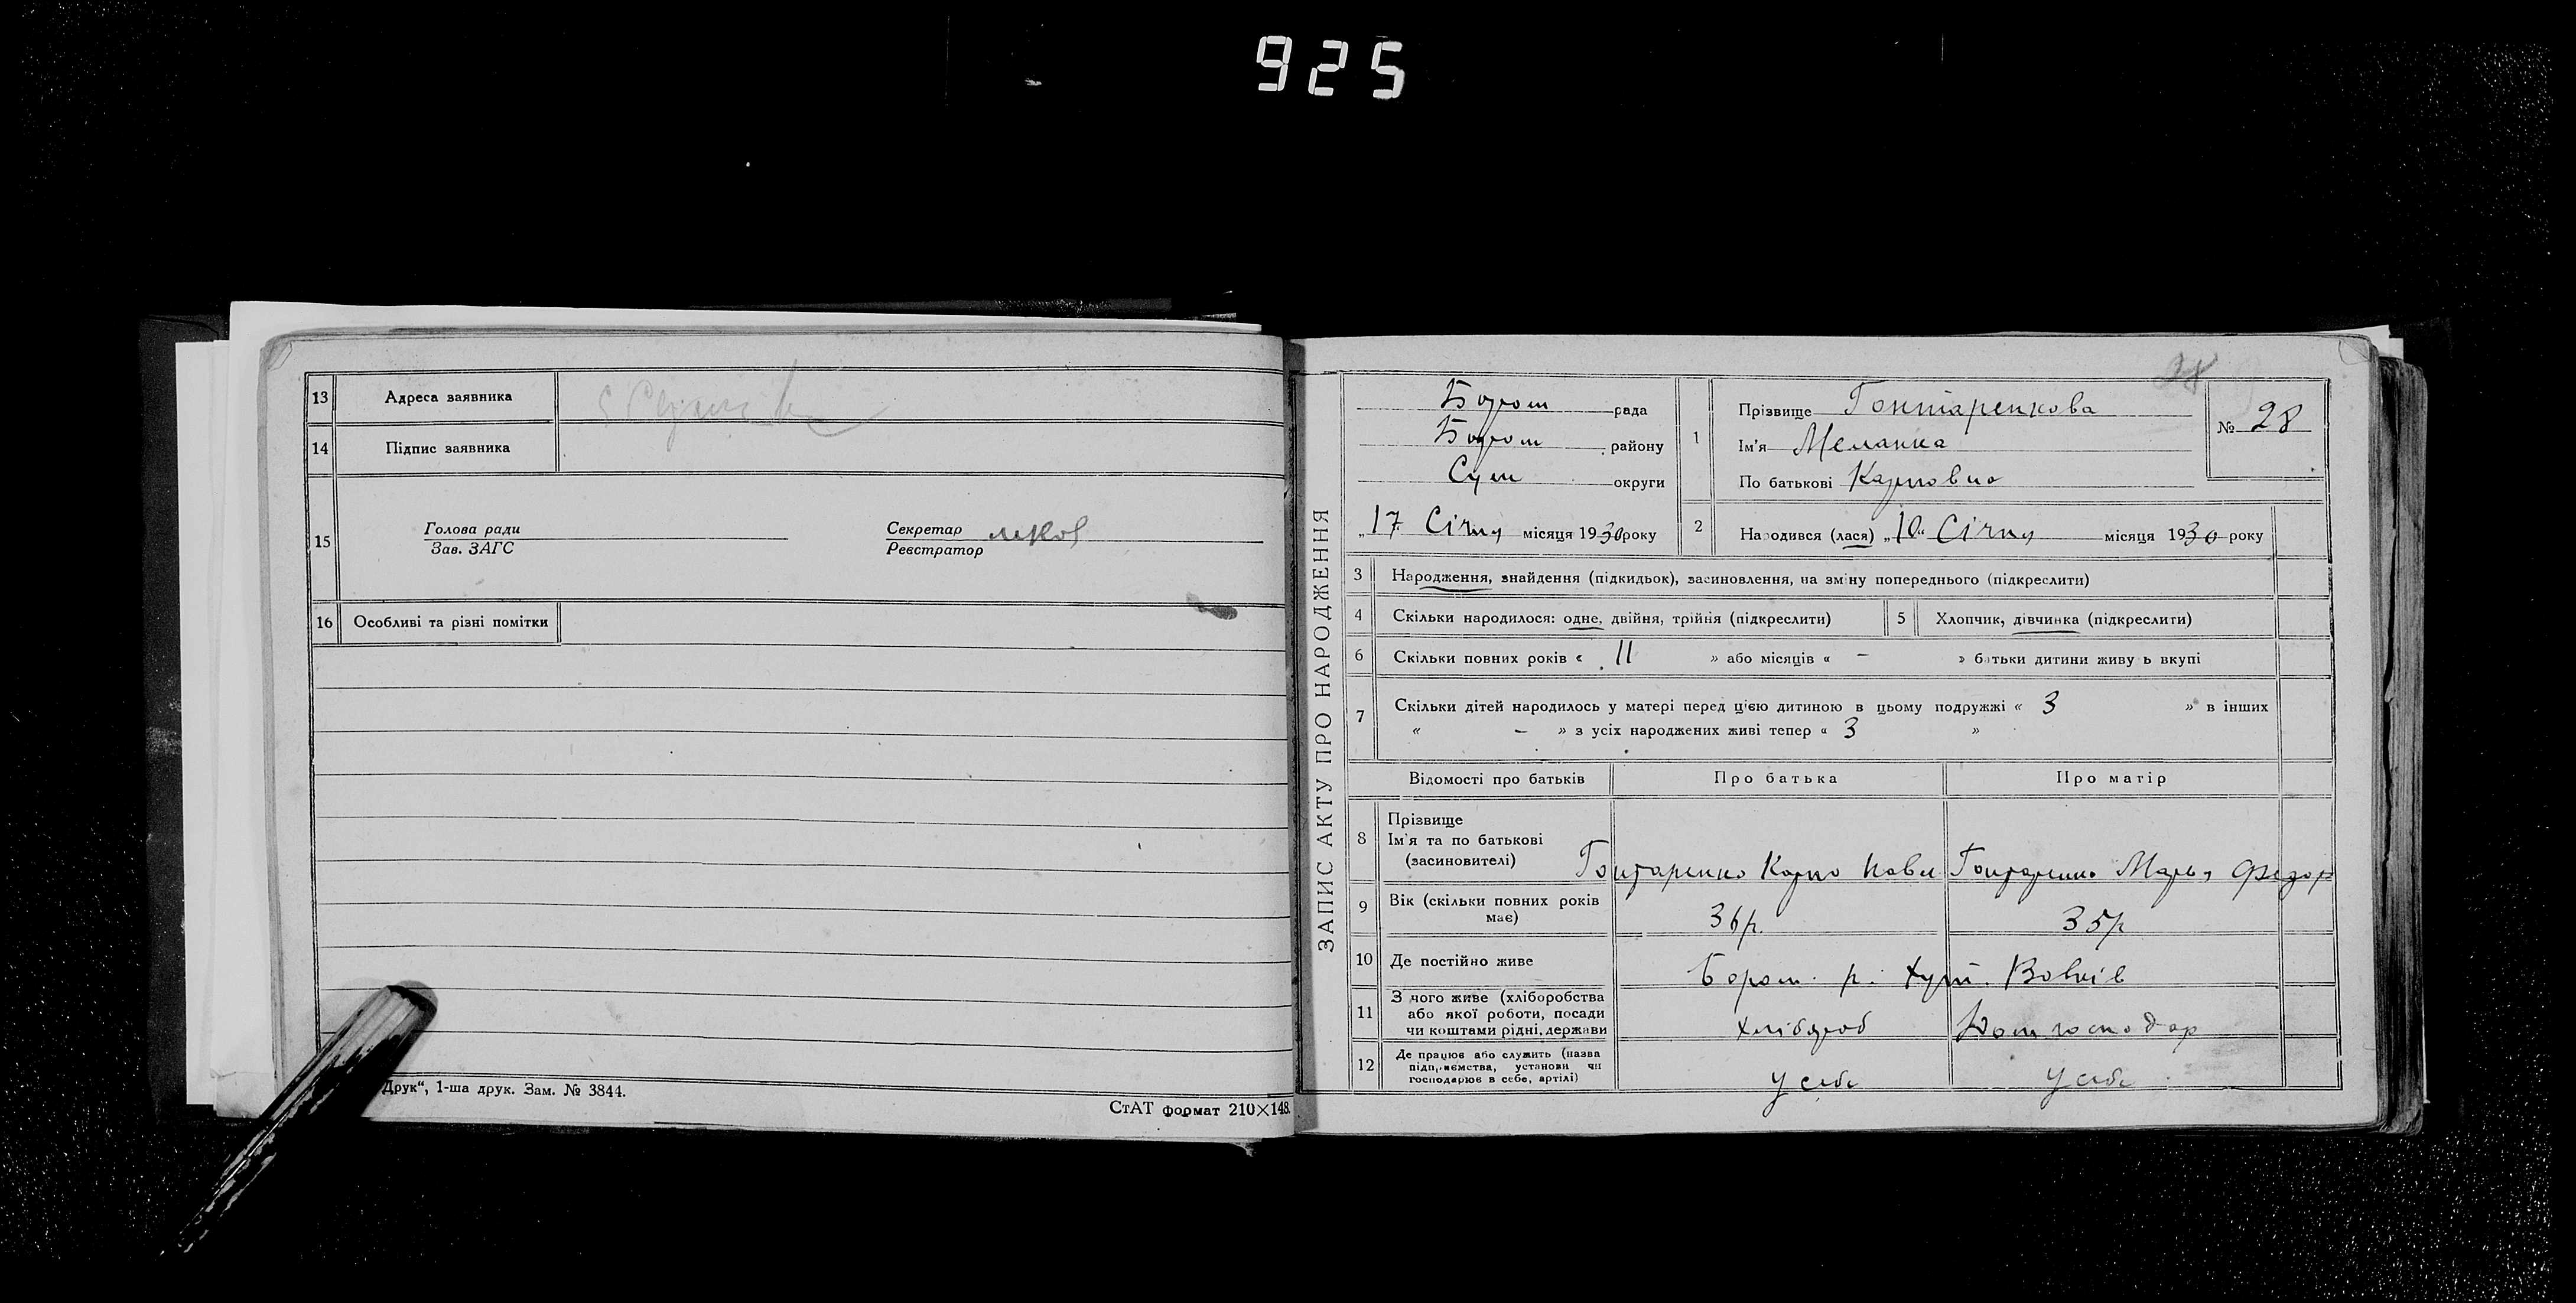 925
13 Адреса заявника
14 Підпис заявника
15 Голова ради Зав. ЗАГС Секретар Реєстратор
16 Особливі та різні помітки
Друк“, 1-ша друк. Зам. № 3844.
СтАТ формат 210×148.
ЗАПИС АКТУ ПРО НАРОДЖЕННЯ
28
Бором рада
Бором району
Сум округи
„17 Січня місяця 1930 року
1 Прізвище Гонтаренкова
Ім’я Меланка
По батькові Карповна
№ 28
2 Народився (лася) „10“ Січня місяця 1930 року
3 Народження, знайдення (підкидьок), засиновлення, на зміну попереднього (підкреслити)
4 Скільки народилося: одне, двійня, трійня (підкреслити) 5 Хлопчик, дівчинка (підкреслити)
6 Скільки повних років « 11 » або місяців « – » батьки дитини живуь вкупі
7 Скільки дітей народилось у матері перед цією дитиною в цьому подружжі « 3 » в інших
« – » з усіх народжених живі тепер « 3 »
Відомості про батьків Про батька Про матір
8 Прізвище
Ім’я та по батькові
(засиновителі) Гонтаренко Карпо Павл Гонтаренко Марья Федор
9 Вік (скільки повних років має) 36 р. 35 р
10 Де постійно живе Бором. р. хут. Вовків
11 З чого живе (хліборобства
або якої роботи, посади
чи коштами рідні, держави хлібороб Домгосподар
12 Де працює або служить (назва
підприємства, установи чи
господарює в себе, артілі) у себе у себе